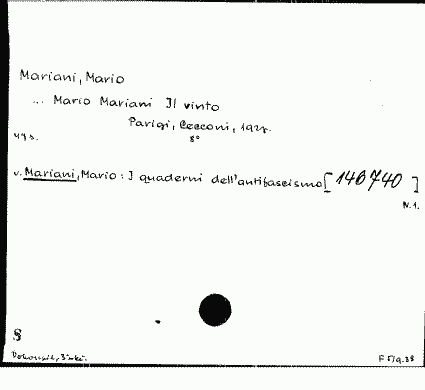 Mariani, Mario
... Mario Mariani Il vinto
Parigi, Cecconi, 1927.
8°
v. Mariani, Mario: I quaderni dell'antifascismo [ 146740 ]
N.1.
§